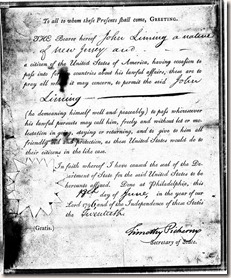 To all to whom these Presents shall come, GREETING.
THE Bearer hereof John Leming a native
of New Jersey and
a citizen of the United States of America, having occasion to
pass into foreign countries about his lawful affairs, these are to
pray all whom it may concern, to permit the said John
Leming
(he demeaning himself well and peaceably) to pass wheresoever
his lawful pursuits may call him, freely and without let or mo-
lestation in going, staying or returning, and to give him all
friendly aid and protection, as these United States would do to
their citizens in the like case.
In faith whereof I have caused the seal of the De-
partment of State for the said United States to be
hereunto affixed. Done at Philadelphia, this
day of June, in the year of our
Lord 1796 and of the Independence of these States
the Twentieth.
(Gratis.)
Timothy Pickering
Secretary of State.